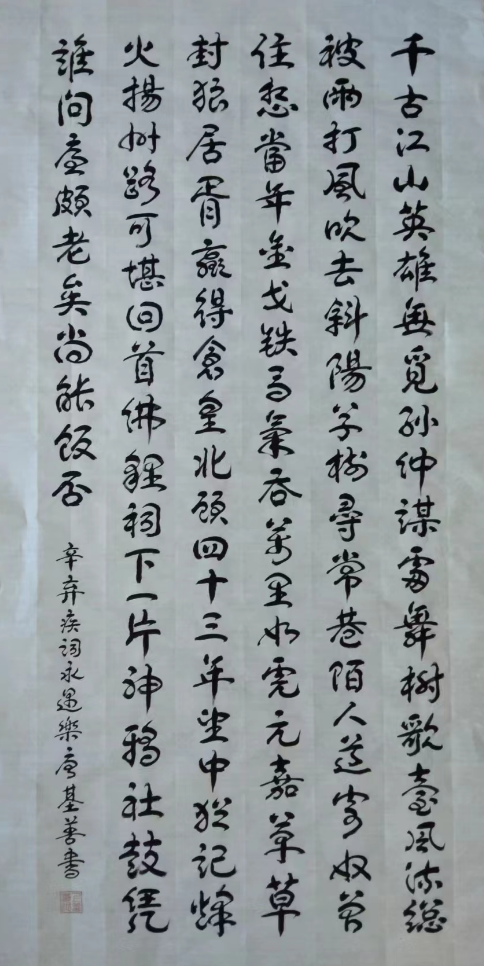 千古江山英雄無覓孙仲謀處舞榭歌臺風流總
被雨打風吹去斜陽草樹尋常巷陌人道寄奴曾
住想當年金戈铁马氣吞萬里如虎元嘉草草
封狼居胥贏得倉皇北顧四十三年望中犹記烽
火揚州路可堪回首佛貍祠下一片神鸦社鼓凭
誰問廉頗老矣尚能飯否
辛弃疾詞永遇樂唐基善書